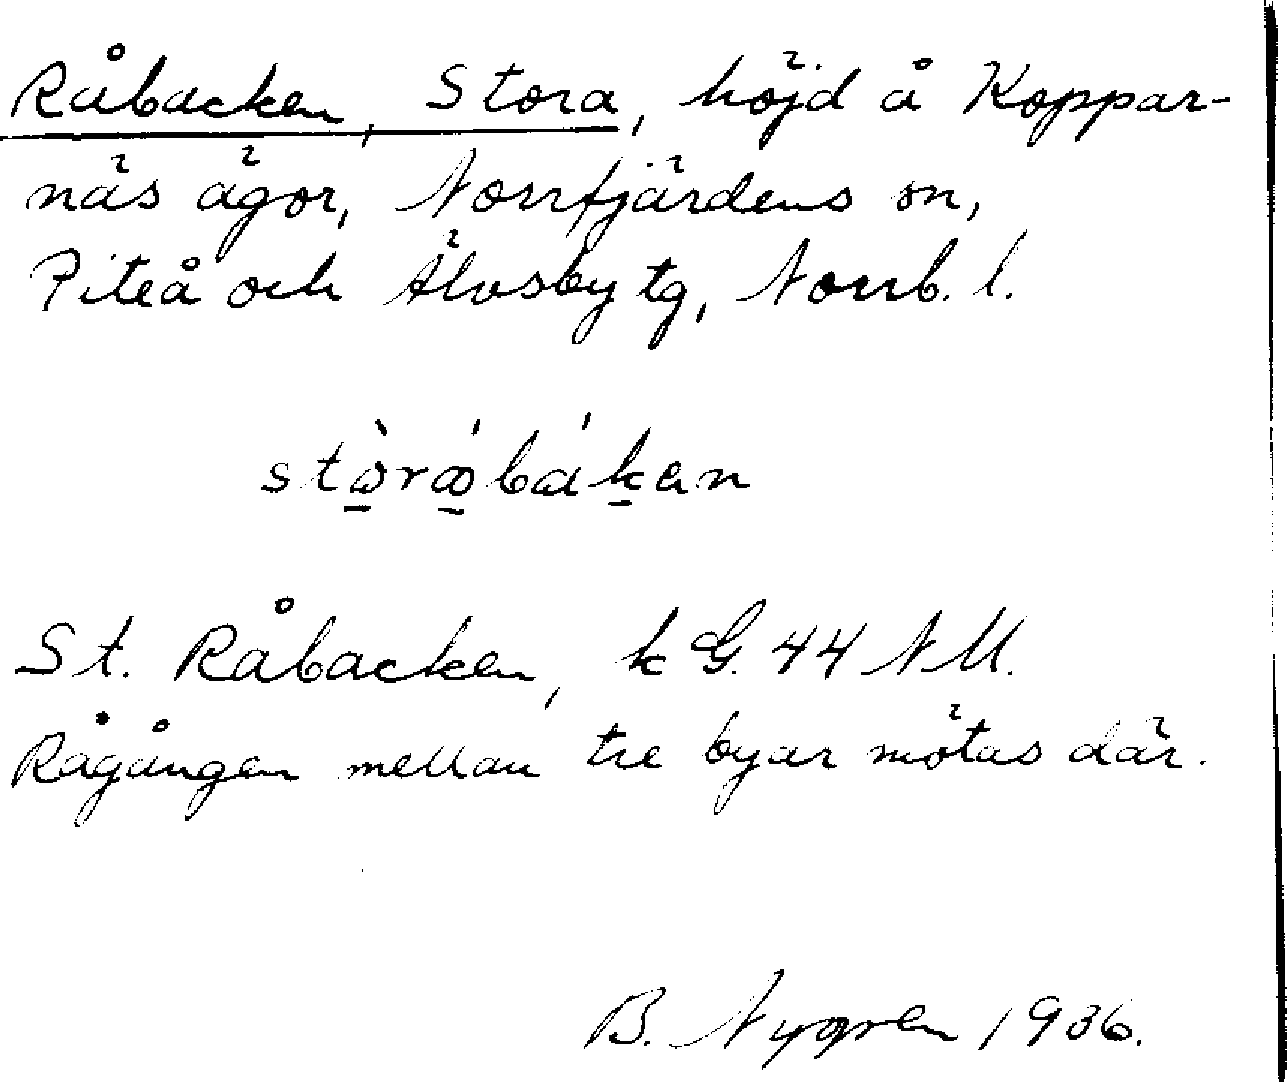 Råbacken, Stora, höjd å Koppar-
näs ägor, Norrfjärdens sn,
Piteå och Älvsby tg, Norrb. l.
St. Råbacken, k G. 44 NM.
Rågången mellan tre byar mötas där.
B. Nygren 1936.